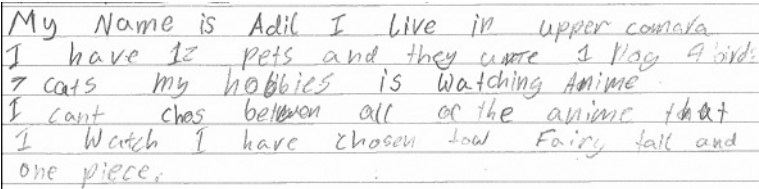 My Name is Adil I Live in upper comara
I have 12 pets and they 1 9 birds
7 cats my hobbies is watching Anime
I cant chos between all of the anime that
I Watch I have chosen Fairy tail and
one piece.